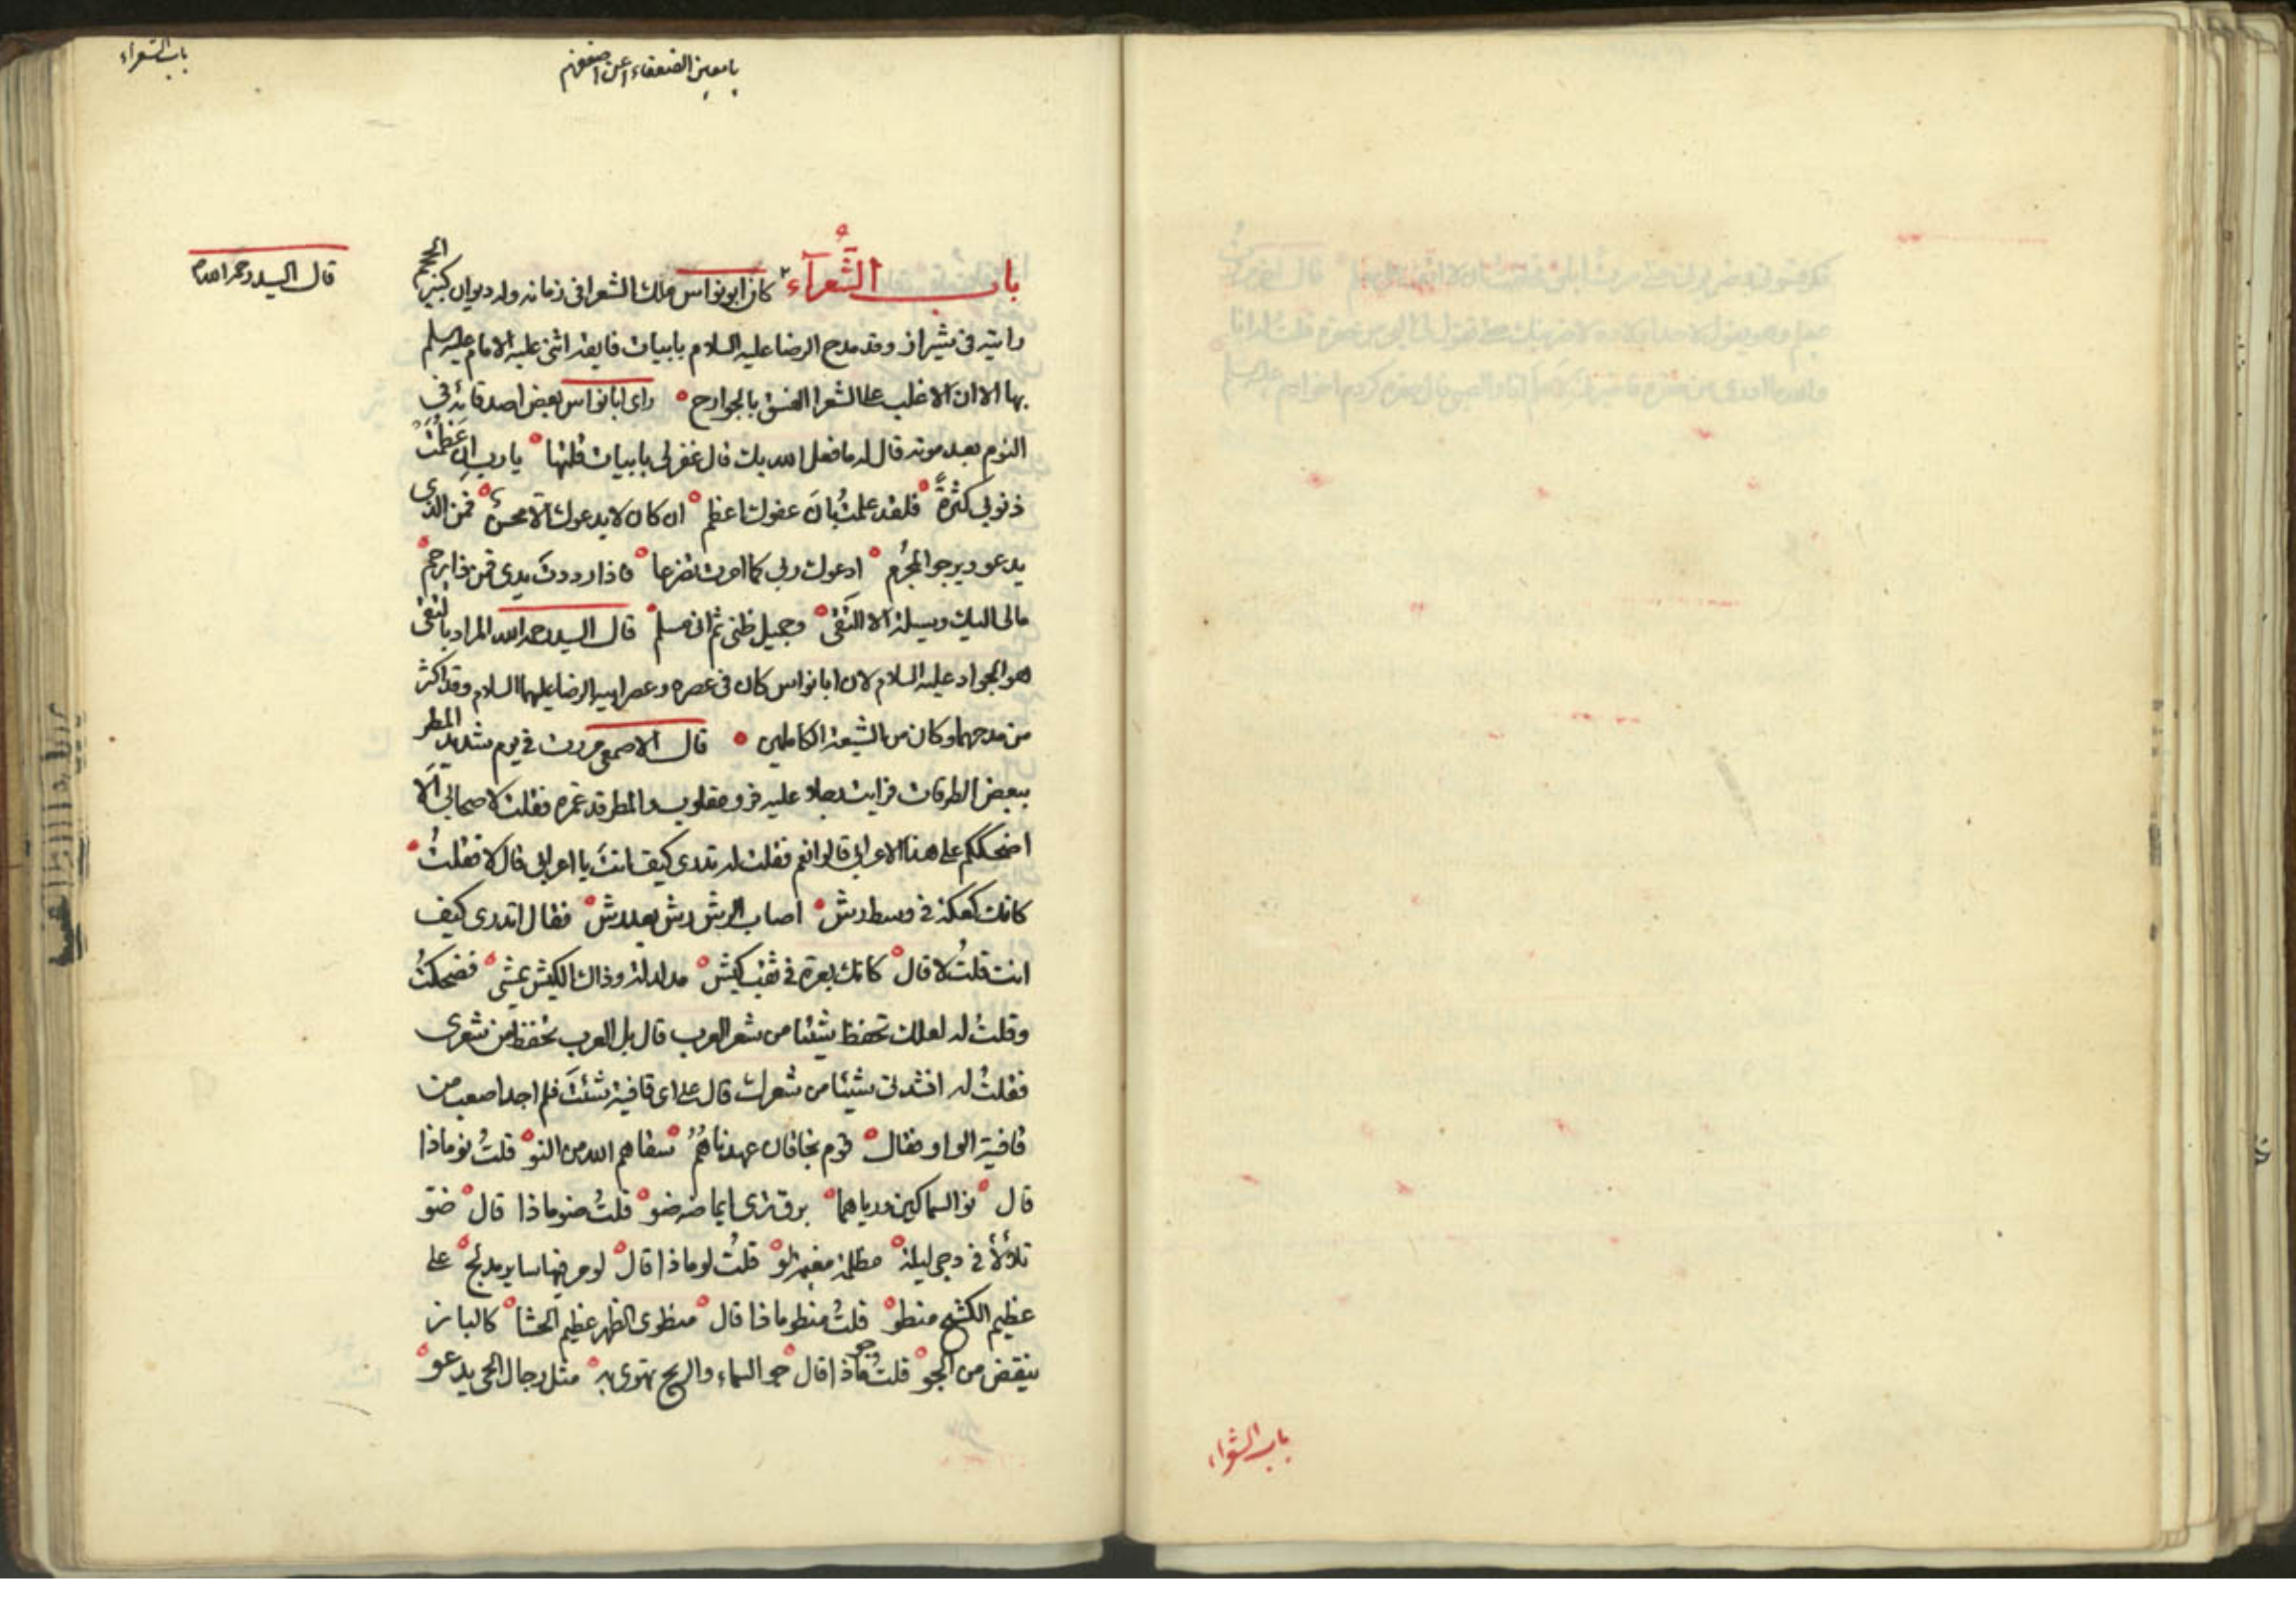 باب الشعراء
يا معين الضعفاء اعن اضعفهم
قال السيد رحمه الله
باب الشُّعرآء كان ابونواس ملك الشعرا فى زمانه وله ديوان كبير الحجم
رايته فى شيراز وقد مدح الرضا عليه السلام بابيات فايقه اثنى عليه الامام عليه السلم
بها الا ان الاغلب على الشعرا الفسق بالجوارح راى ابا نواس بعض اصدقائه فى
النوم بعد موته قال له ما فعل الله بك قال غفر لى بابيات قلتها يا رب ان عَظُمَتْ
ذنوبى كثرةً فلقد علمتُ بان عفوك اعظم ان كان لا يدعوك الا محسنٌ فمن الذى
يدعو ويرجو المجرُم ادعوك ربى كما امرت تضرعا فاذا رددتَ يدى فمن ذا يرحم
مالى اليك وسيلة الا التقى وجميل ظنى ثم انى مسلم قال السيد رحمه الله المراد بالتقى
هو الجواد عليه السلام لان ابا نواس كان فى عصره وعصر ابيه الرضا عليهما السلام وقد اكثر
من مدحهما وكان من الشيعة الكاملين قال الاصمعى مررت فى يوم شديد المطر
ببعض الطرقات فرايت رجلا عليه فرو مقلوب والمطر قد غمره فقلت لاصحابى الا
اضحككم على هذا الاعرابى قالوا نعم فقلت له تدرى كيف انتَ يا اعرابى قال لا فقلتُ
كانك كعكة فى وسط رش اصاب الرش رش بعد رش فقال اتدرى كيف
انت قلتُ لا قال كانك بعرة فى ثقب كبش مدلدلة وذاك الكبش يمشى فضحكتُ
وقلتُ له لعلك تحفظ شيئا من شعر العرب قال بل العرب تحفظ من شعرى
فقلتُ له انشدنى شيئا من شعرك قال على اى قافية شئتَ فلم اجد اصعب من
قافية الواو فقال قوم بخاقان عهدناهُمُ سقاهم الله من النو قلتُ نو ماذا
قال نو السماكين ورياهما برق ترى ايماضه ضو قلتُ ضو ماذا قال ضو
تلألأ فى دجى ليلة مظلمة مغيمة لو قلتُ لو ماذا قال لو مر فيها ساير مدلج على
عظيم الكشح منطو قلتُ منطو ماذا قال منطوى الظهر عظيم الحشا كالباز
ينقض من الجو قلتُ جو ماذا قال جو السماء والريح تهوى به مثل رجال الحى يدعو
باب الشعراء